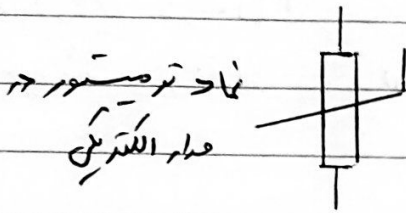 نماد ترمیستور در
مدار الکتریکی